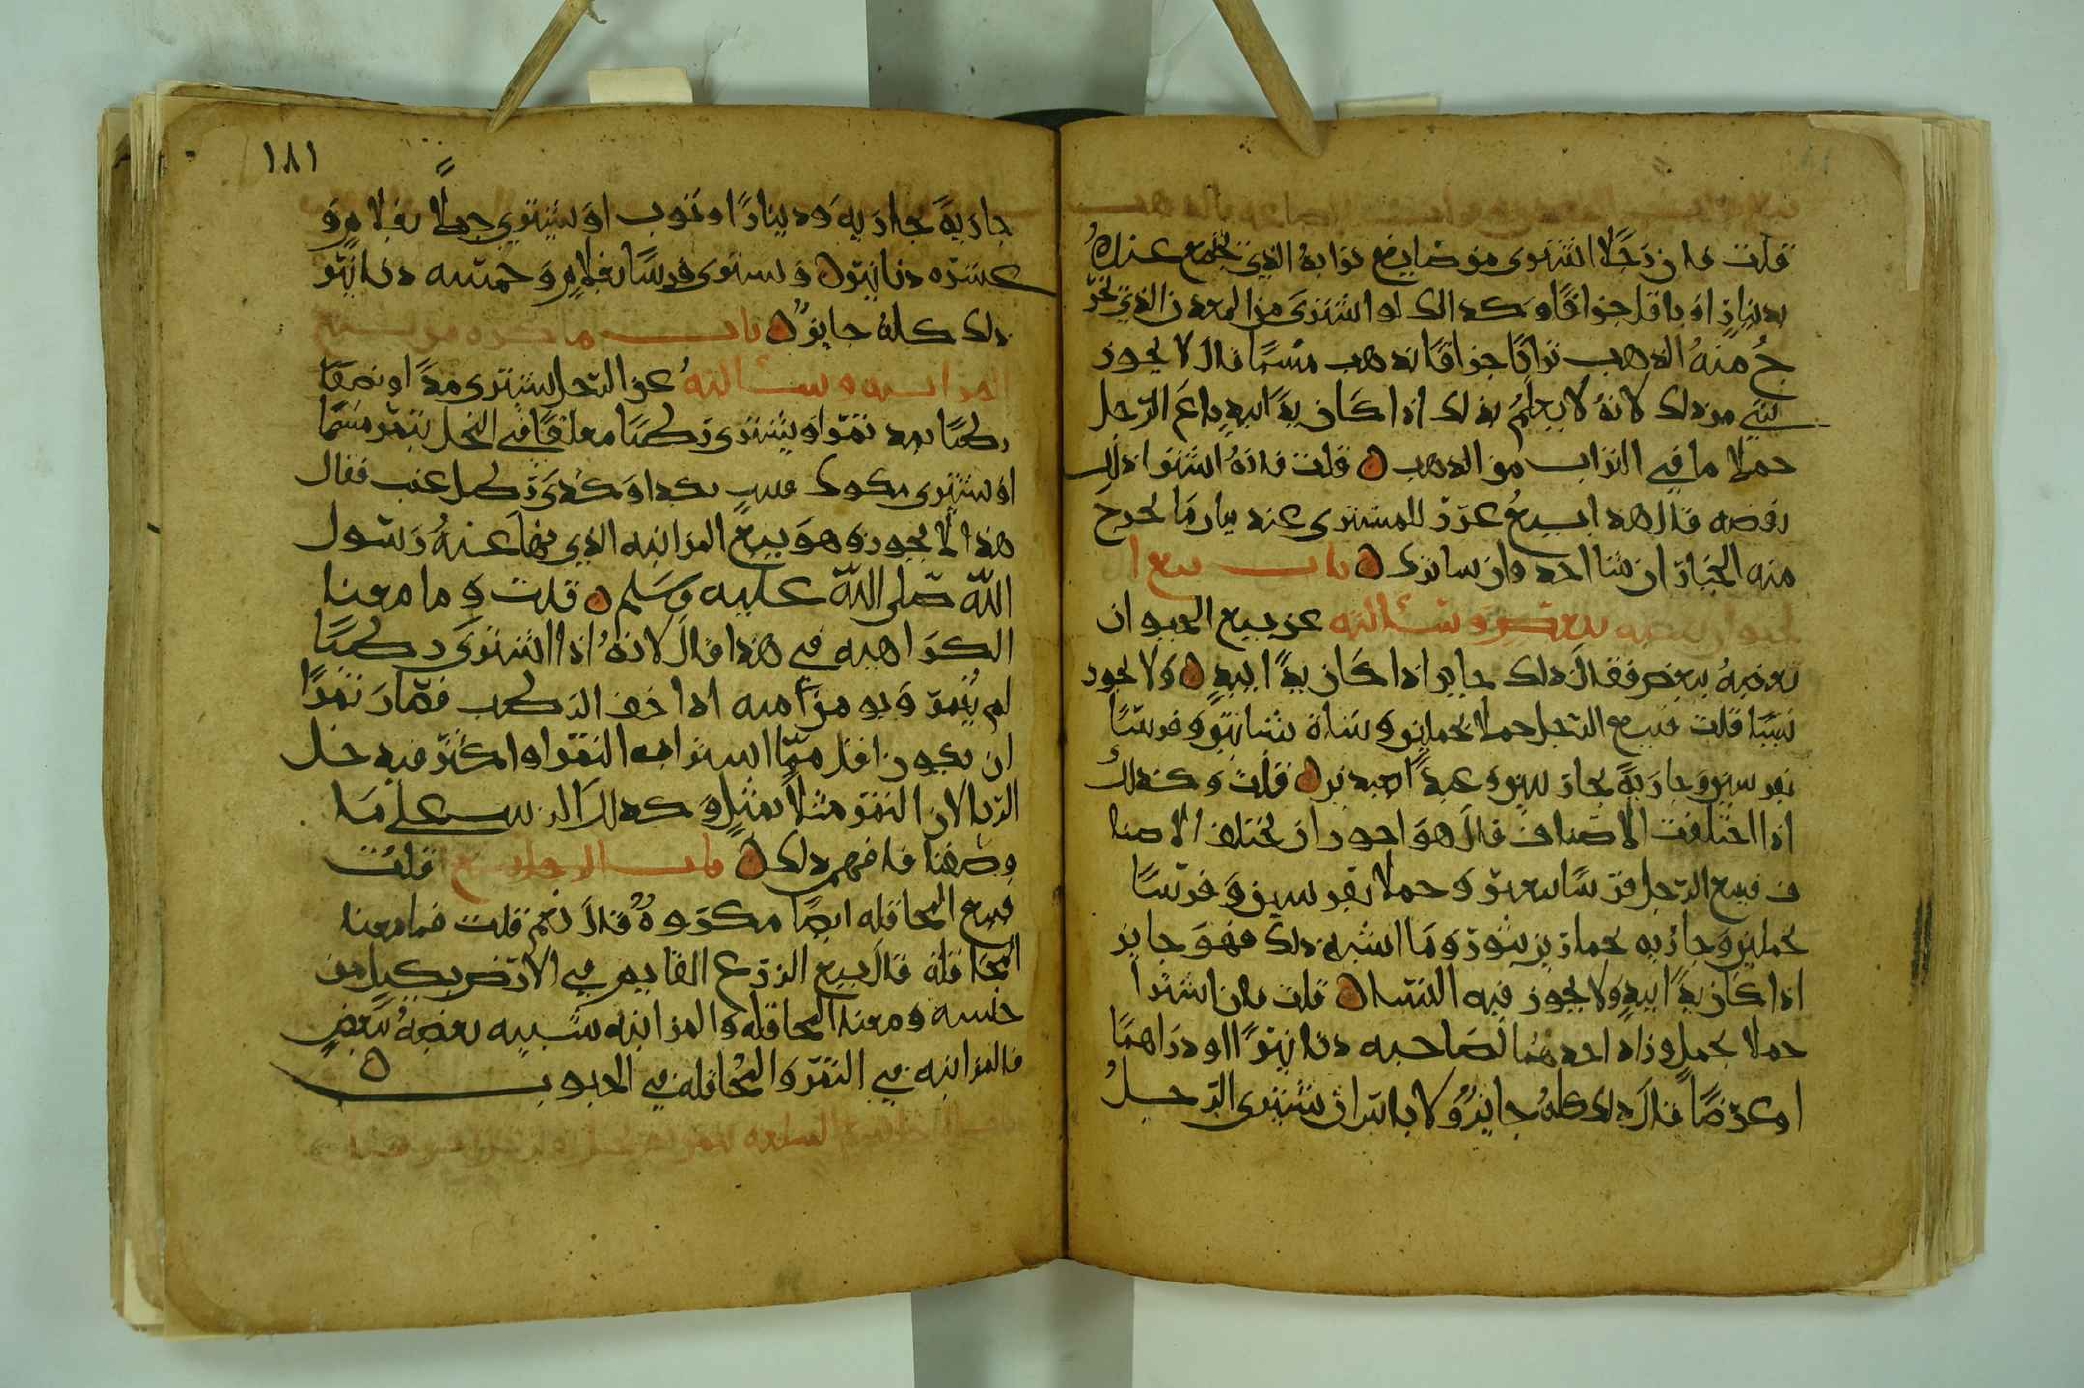 قلت فان رجلا اشترى من صايغ ترابه الذي يجمع عنده
بدينار او باقل جزافا وكذلك لو اشترى من المعدن الذي يخر
ج منه الذهب ترابا جزافا بذهب مسما قال لا يجوز
شي من ذلك لانه لا يعلم بذلك اذا كان يدا بيد
ما في التراب من الذهب قلت فانه اشترا ذلك
بفضه قال هذا بيع غرر للمشتري عنده
منه الخيار ان شا اخذ وان شا ترك باب بيع ا
لحيوان بعضه ببعض وسالته عن بيع الحيوان
بعضه ببعض فقال ذلك جايز اذا كان يدا بيد ولا يجوز
نسيا قلت فيبيع الرجل جملا بجملين وشاة بشاتين وفرسا
بفرسين وجارية بجاريتين وعبدا بعبدين قلت وكذلك
اذا اختلفت الاصناف قال هو اجوز ان تختلف الاصنا
ف فيبيع الرجل فرسا ببعير وجملا بفرسين وفرسا
بجملين وجاريه بحمارين بثور وما اشبه ذلك فهو جايز
اذا كان يدا بيد ولا يجوز فيه النسا قلت فان اشترا
جملا بجمل وزاد احدهما لصاحبه دنانيرا او دراهما
او عرضا قال ذلك كله جايز ولا باس ان يشتري الرجل
١٨١
جارية بجاريه ودينارا وثوب او يشتري جملا بغلام و
عشره دنانير ويشترى فرسا بغلام وخمسه دنانير
ذلك كله جايز باب ما كره من بيع
المزابنه وسالته عن الرجل يشتري مدا او نصفا
رطبا بمد تمر او يشتري رطبا معلقا في النخل بتمر مسما
او يشتري زبيب بكذا وكذى رطل عنب فقال
هذا لا يجوز وهو بيع المزابنه الذي نها عنه رسول
الله صلى الله عليه وسلم قلت وما معنا
الكراهيه في هذا قال لانه اذا اشترى رطبا
لم يثمر اذا خف الرطب فصار تمرا
ان يكون اقل مما اشترا به التمر او اكثر فيه دخل
الربا لان التمر مثلا بمثل وكذلك الزبيب على ما
وصفنا فافهم ذلك باب قلت
فبيع المحاقله ايضا مكروه قال نعم قلت فما معنا
المحاقله قال بيع الزرع القايم في الارض بكيل من
جنسه ومعنا المحاقله والمزابنه شبيه بعضه ببعض
فالمزابنه في التمر والمحاقله في الحبوب